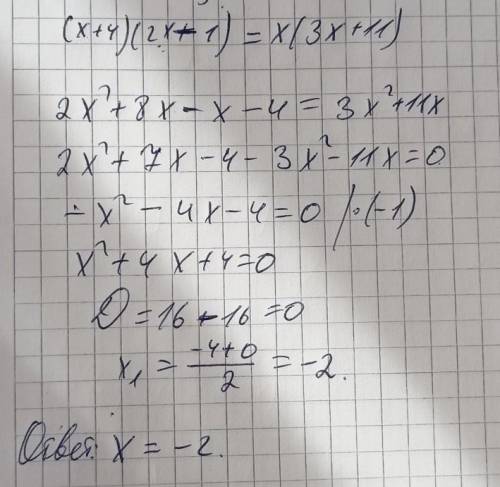 (x+4)(2x-1) = x(3x+11)
2x²+8x-x-4 = 3x²+11x
2x²+7x-4-3x²-11x=0
-x²-4x-4=0 /·(-1)
x²+4x+4=0
D=16-16=0
x₁ = (-4+0)/2 = -2.
Ответ: x = -2.